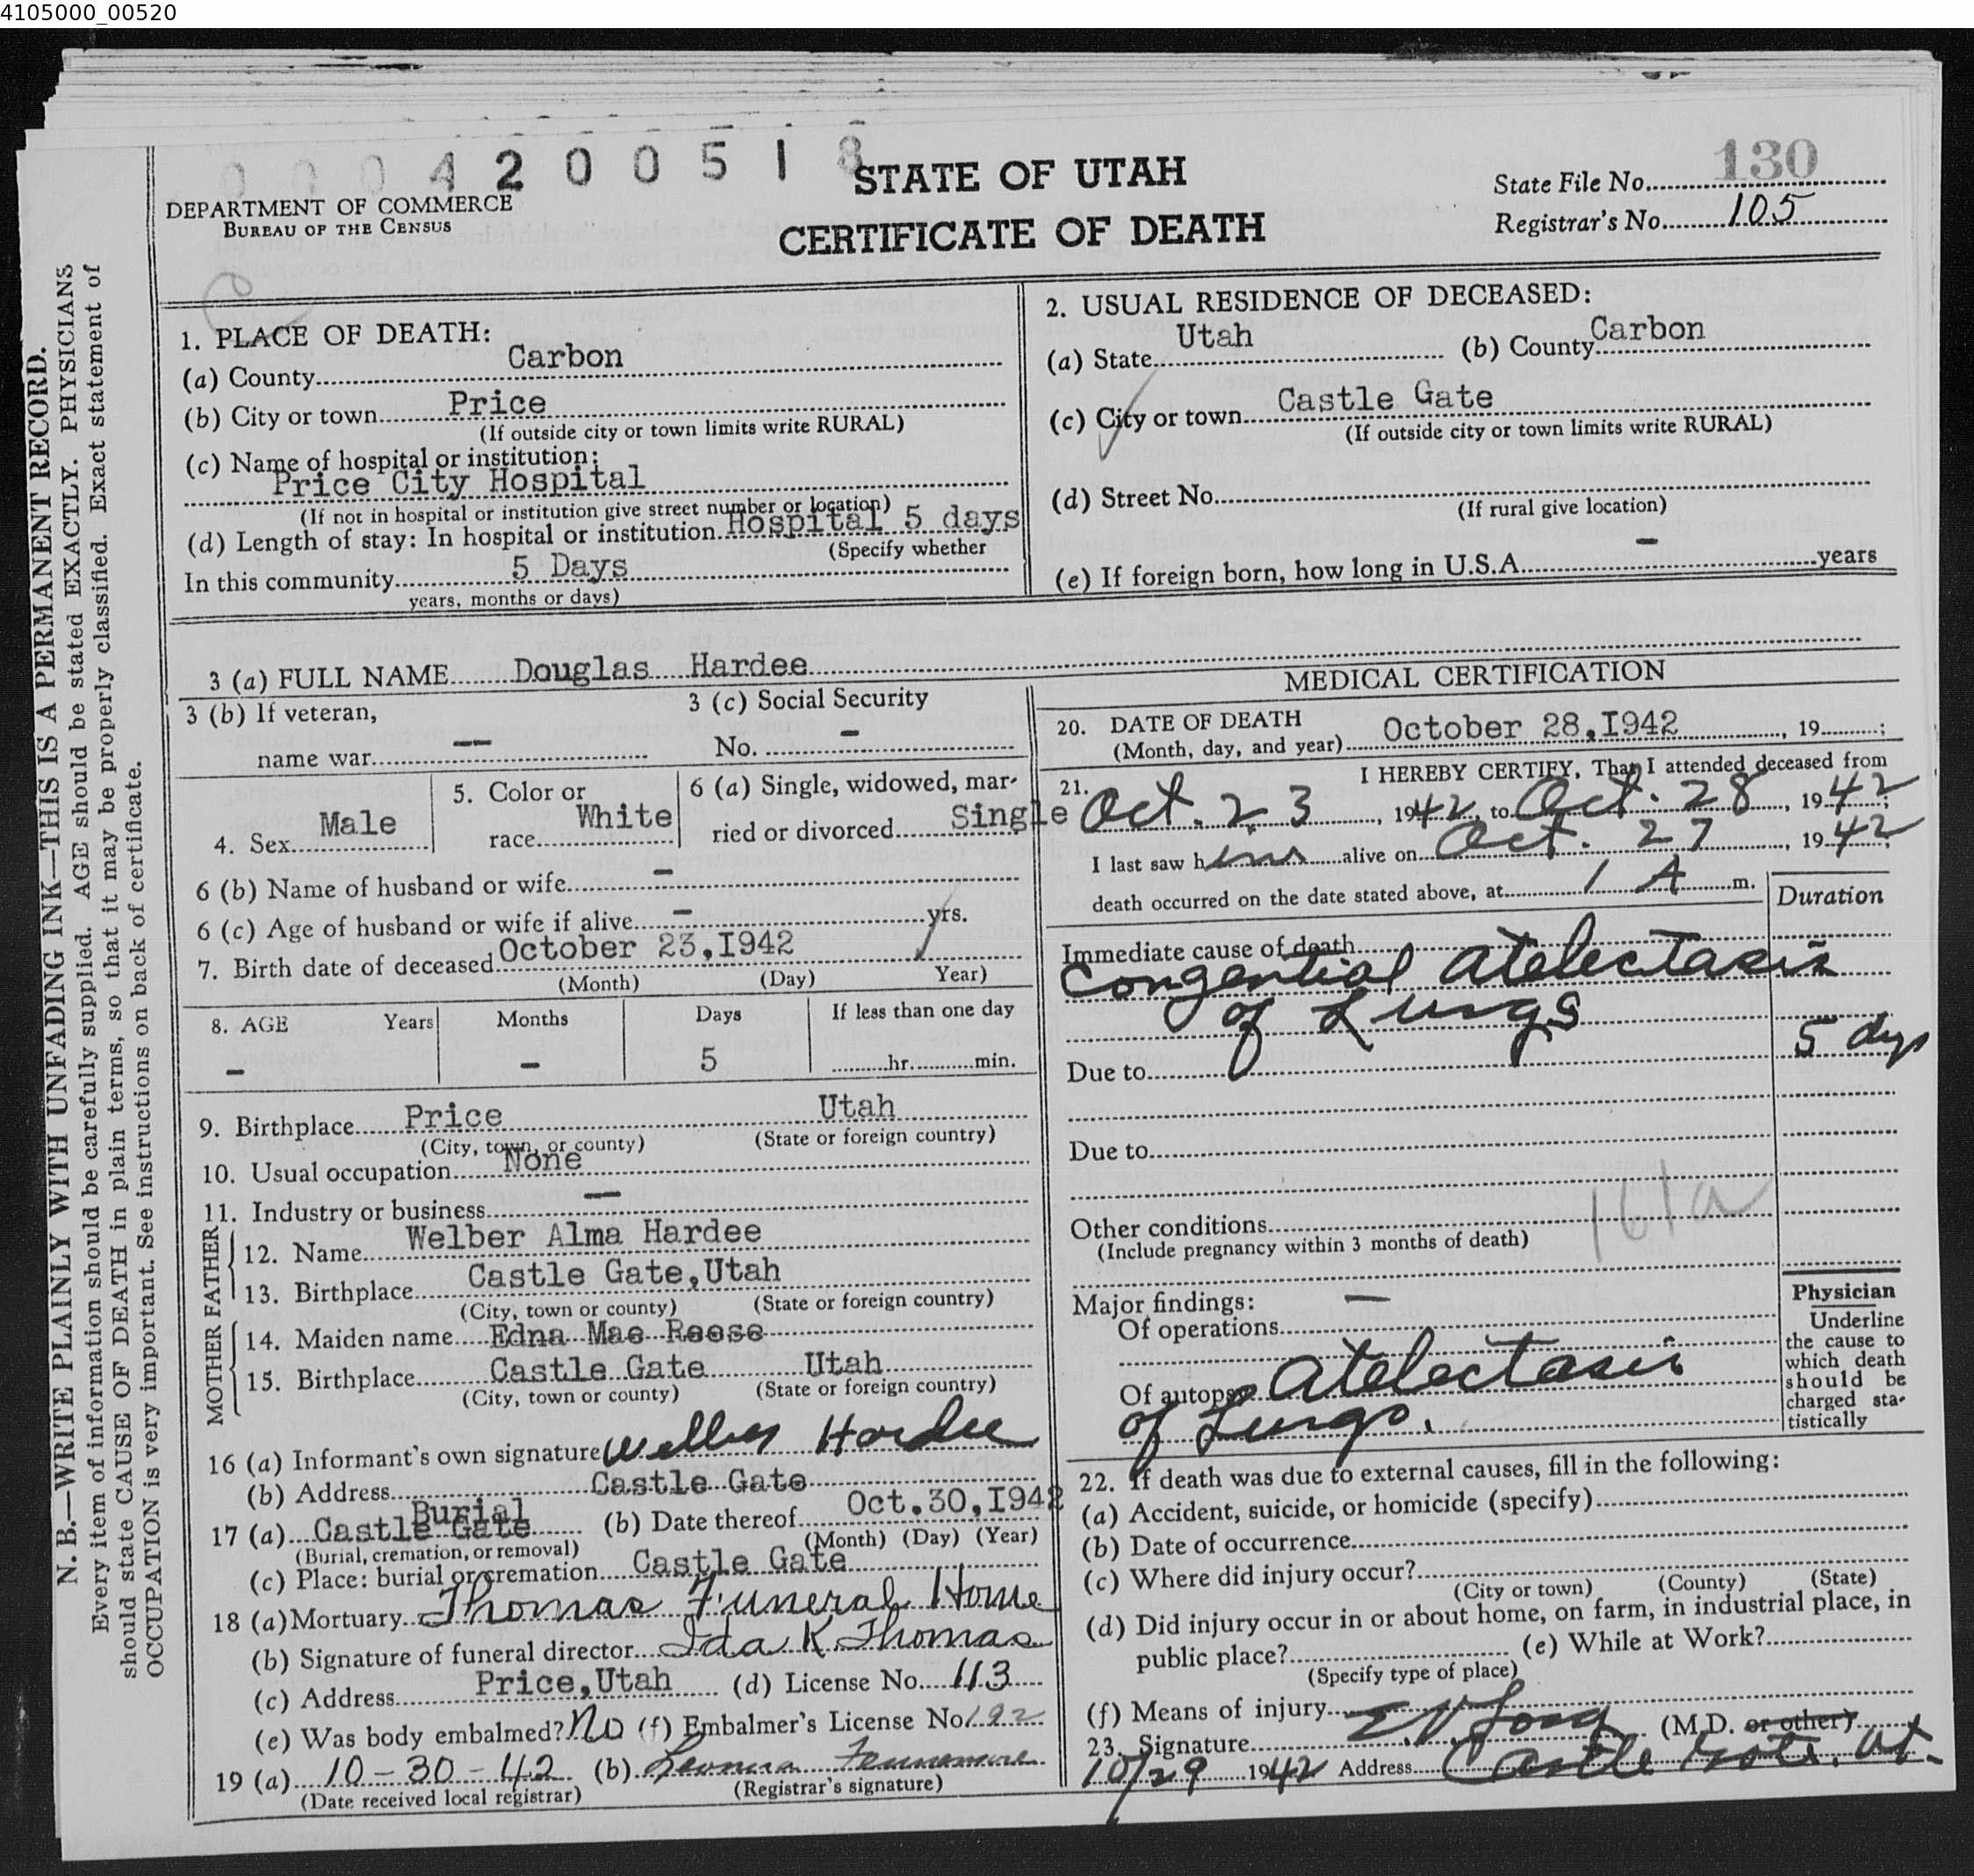 4105000_00520
0004200518
STATE OF UTAH
CERTIFICATE OF DEATH
DEPARTMENT OF COMMERCE
BUREAU OF THE CENSUS
State File No. 130
Registrar's No. 105
N. B.—WRITE PLAINLY WITH UNFADING INK—THIS IS A PERMANENT RECORD.
Every item of information should be carefully supplied. AGE should be stated EXACTLY. PHYSICIANS
should state CAUSE OF DEATH in plain terms, so that it may be properly classified. Exact statement of
OCCUPATION is very important. See instructions on back of certificate.
1. PLACE OF DEATH:
(a) County Carbon
(b) City or town Price
(If outside city or town limits write RURAL)
(c) Name of hospital or institution:
Price City Hospital
(If not in hospital or institution give street number or location)
(d) Length of stay: In hospital or institution Hospital 5 days
(Specify whether
In this community 5 Days
years, months or days)
2. USUAL RESIDENCE OF DECEASED:
(a) State Utah (b) County Carbon
(c) City or town Castle Gate
(If outside city or town limits write RURAL)
(d) Street No.
(If rural give location)
(e) If foreign born, how long in U.S.A. - years
3 (a) FULL NAME Douglas Hardee
3 (b) If veteran,
name war --
3 (c) Social Security
No. -
4. Sex Male
5. Color or
race White
6 (a) Single, widowed, mar-
ried or divorced Single
6 (b) Name of husband or wife -
6 (c) Age of husband or wife if alive - yrs.
7. Birth date of deceased October 23,I942
(Month) (Day) Year)
8. AGE Years Months Days If less than one day
- - 5 hr. min.
9. Birthplace Price Utah
(City, town, or county) (State or foreign country)
10. Usual occupation None
11. Industry or business --
FATHER
12. Name Welber Alma Hardee
13. Birthplace Castle Gate,Utah
(City, town or county) (State or foreign country)
MOTHER
14. Maiden name Edna Mae Reese
15. Birthplace Castle Gate Utah
(City, town or county) (State or foreign country)
16 (a) Informant's own signature Welber Hardee
(b) Address Castle Gate
Burial
17 (a) Castle Gate (b) Date thereof Oct.30,I942
(Burial, cremation, or removal) (Month) (Day) (Year)
(c) Place: burial or cremation Castle Gate
18 (a) Mortuary Thomas Funeral Home
(b) Signature of funeral director Ida K Thomas
(c) Address Price,Utah (d) License No. 113
(e) Was body embalmed? No (f) Embalmer's License No. 192
19 (a) 10-30-42 (b)
(Date received local registrar) (Registrar's signature)
MEDICAL CERTIFICATION
20. DATE OF DEATH
(Month, day, and year) October 28,I942, 19 ;
21. I HEREBY CERTIFY, That I attended deceased from
Oct. 23, 1942, to Oct. 28, 1942;
I last saw him alive on Oct. 27, 1942;
death occurred on the date stated above, at 1 A m.
Duration
Immediate cause of death
Congential Atelectasis
of Lungs
5 dys
Due to
Due to
Other conditions
(Include pregnancy within 3 months of death)
161a
Major findings:
Of operations —
Of autopsy Atelectasis
of Lungs.
Physician
Underline
the cause to
which death
should be
charged sta-
tistically
22. If death was due to external causes, fill in the following:
(a) Accident, suicide, or homicide (specify)
(b) Date of occurrence
(c) Where did injury occur?
(City or town) (County) (State)
(d) Did injury occur in or about home, on farm, in industrial place, in
public place? (e) While at Work?
(Specify type of place)
(f) Means of injury
23. Signature (M.D. or other)
10/29 1942 Address Castle Gate, Ut.